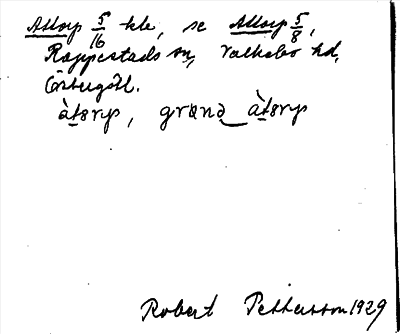 Attorp 5/16 hle, se Attorp 5/8,
Rappestads sn, Valkebo hd,
Östergötl.
àtørp, grɑnə_àtørp
Robert Pettersson 1929